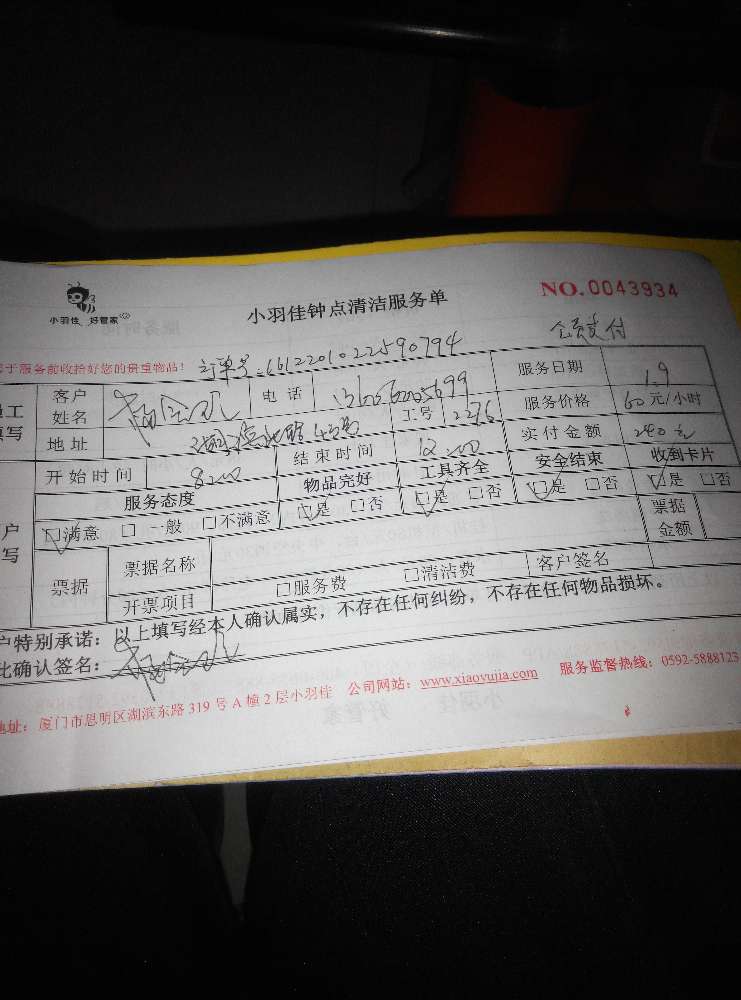 小羽佳 好管家
小羽佳钟点清洁服务单
NO.0043934
会员支付
于服务前收拾好您的贵重物品!
订单号:6612201022590794
工 客户姓名 电话 服务日期 1.9
填写 地址 工号 2276 服务价格 60元/小时
开始时间 8:00 结束时间 12:00 实付金额 240元
服务态度 物品完好 工具齐全 安全结束 收到卡片
户 □满意 □一般 □不满意 □是 □否 □是 □否 □是 □否 □是 □否
写 票据 票据名称 票据金额
开票项目 □服务费 □清洁费 客户签名
户特别承诺:以上填写经本人确认属实,不存在任何纠纷,不存在任何物品损坏。
此确认签名:
地址:厦门市思明区湖滨东路319号A幢2层小羽佳 公司网站:www.xiaoyujia.com 服务监督热线:0592-5888123